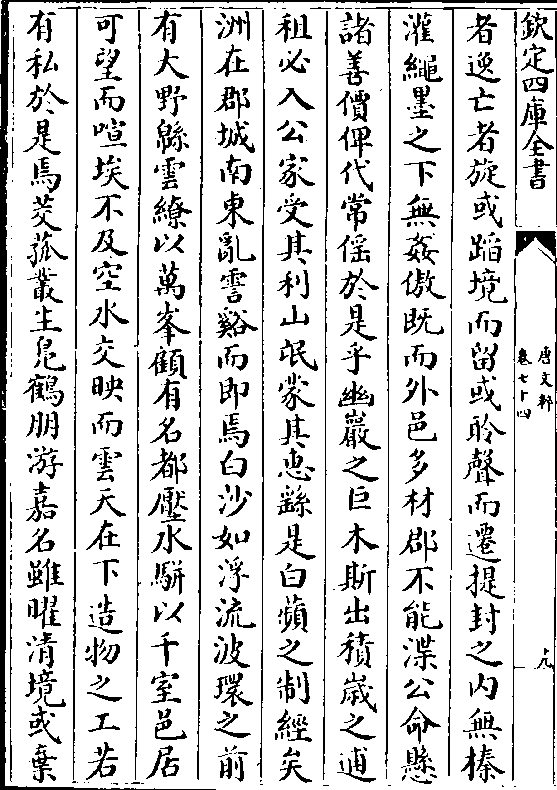 欽定四庫全書
唐文粹
卷七十四
十九
者逸亡者旋或蹈境而留或聆聲而遷提封之内無榛
灌繩墨之下無姦傲既而外邑多材郡不能渫公命懸
諸善價俾代常傜於是乎幽巖之巨木斯出積嵗之逋
租必入公家受其利山氓蒙其惠繇是白蘋之制經矣
洲在郡城南東亂霅谿而即焉白沙如浮流波環之前
有大野緜雲繚以萬峯顧有名都壓水駢以千室邑居
可望而喧埃不及空水交映而雲天在下造物之工若
有私於是焉茭菰叢生鳬鶴朋游嘉名雖曜清境或棄